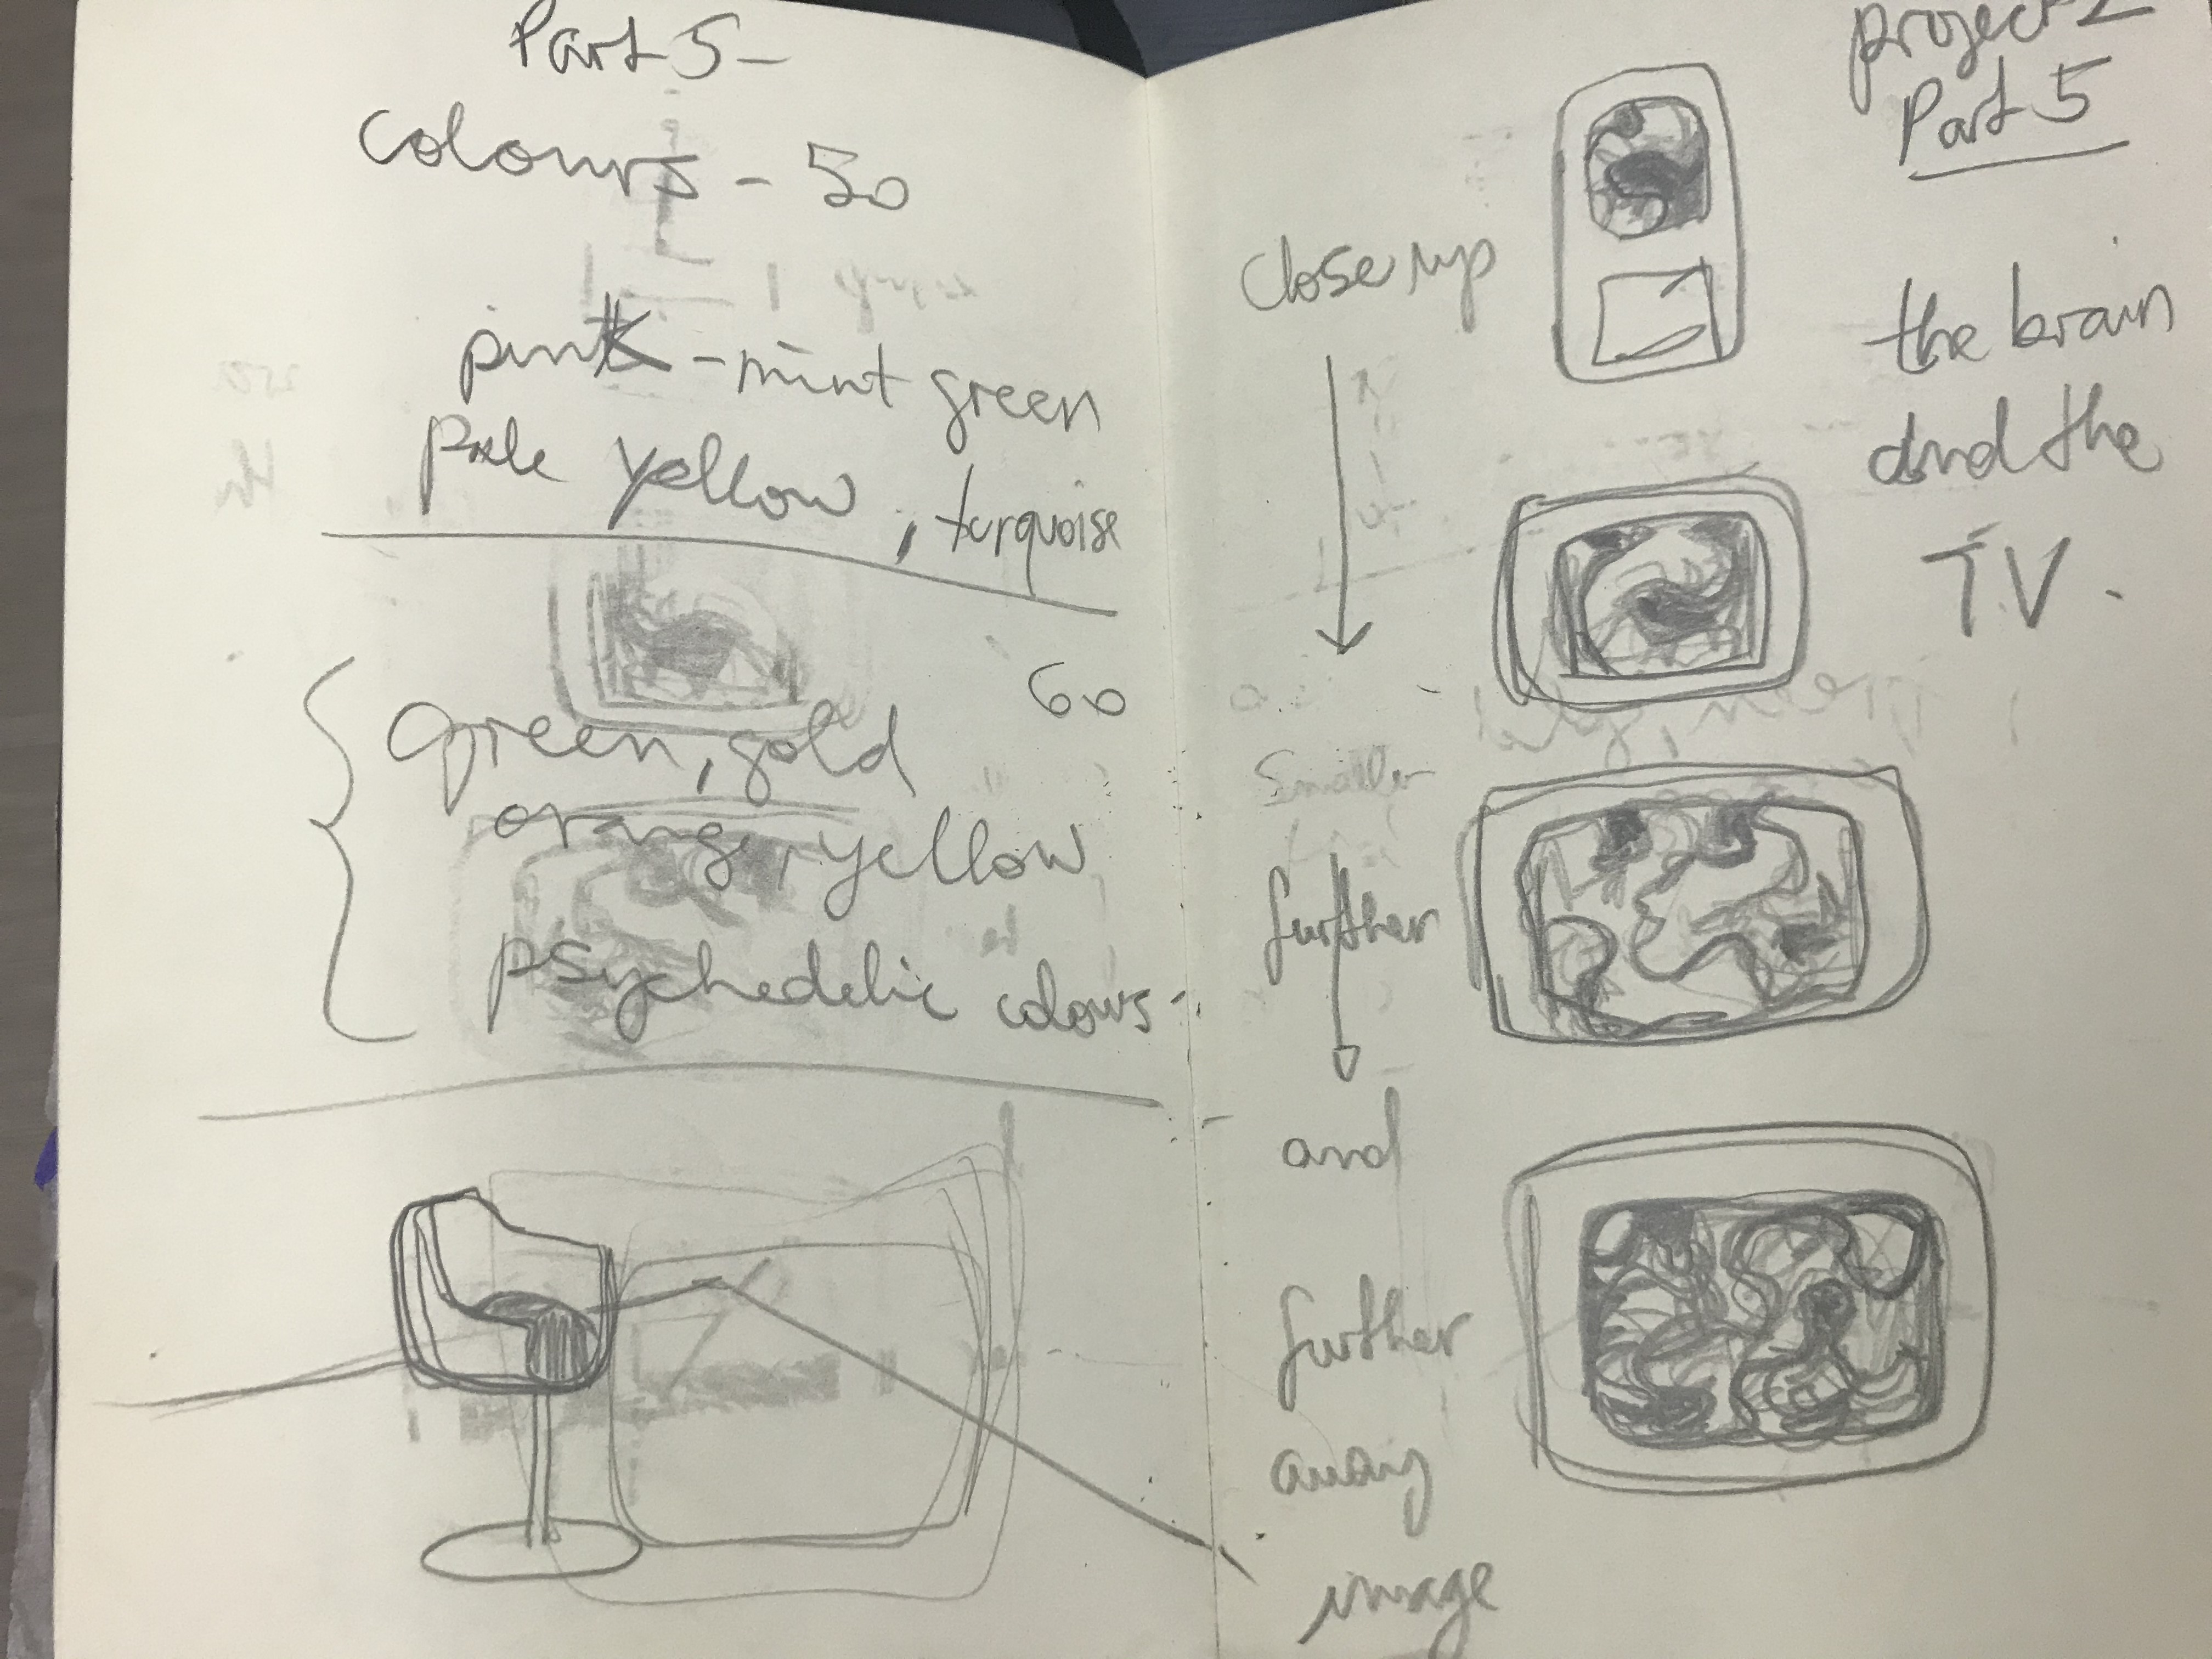 Part 5 -
colours - 50
pink - mint green
pale yellow, turquoise
60
green, gold
orange, yellow
psychedelic colours -
project 2
Part 5
the brain
and the
TV.
close up
smaller
further
and
further
away
image